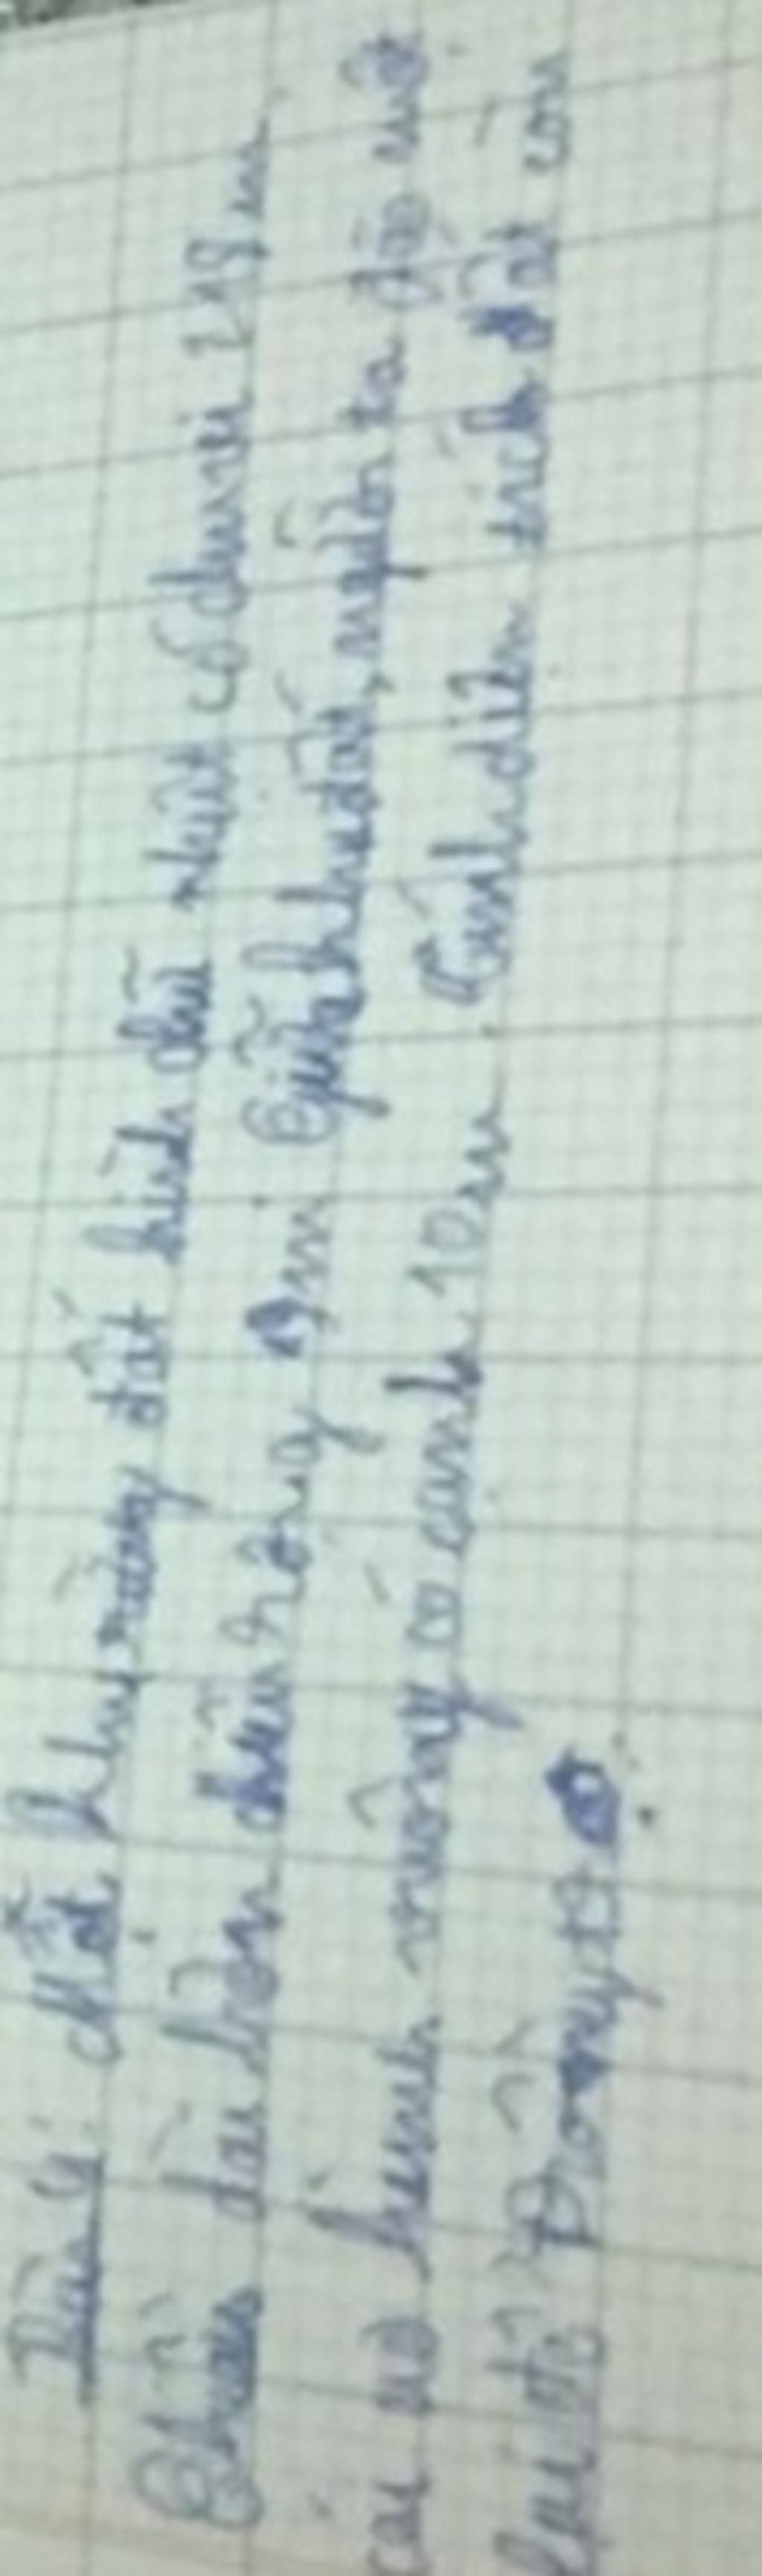 Bài 4: Một khu ruộng đất hình chữ nhật có chu vi 218 m.
Chiều dài hơn chiều rộng 19m. Giữa khu đất, người ta đào một
cái ao hình vuông có cạnh 10m. Tính diện tích đất còn
lại để trồng